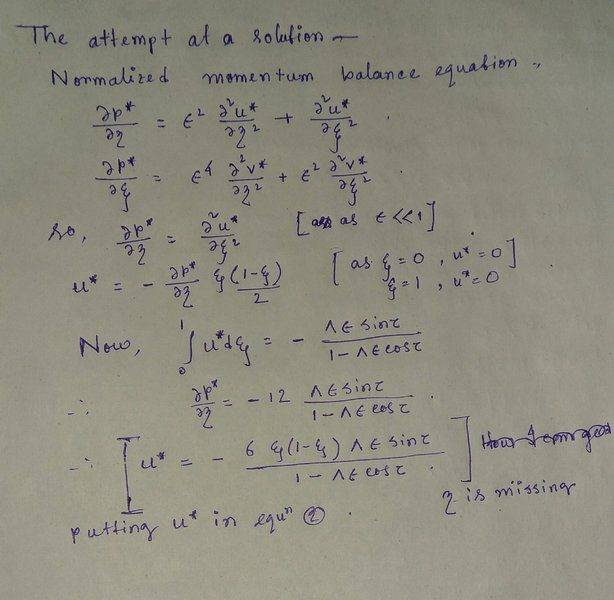 The attempt at a solution —
Normalized momentum balance equation.,
∂p*/∂η = ϵ² ∂²u*/∂η² + ∂²u*/∂ξ² .
∂p*/∂ξ = ϵ⁴ ∂²v*/∂η² + ϵ² ∂²v*/∂ξ² .
so, ∂p*/∂η = ∂²u*/∂ξ² [as ϵ<<1]
u* = - ∂p*/∂η ξ(1-ξ)/2 [as ξ=0, u*=0 ξ=1, u*=0] .
Now, ∫₀¹ u*dξ = - Λϵ sinτ / 1-Λϵ cosτ
∴ ∂p*/∂η = -12 Λϵ sinτ / 1-Λϵ cosτ
∴ [ u* = - 6 ξ(1-ξ) Λϵ sinτ / 1-Λϵ cosτ . ]
η is missing
putting u* in equⁿ ② .